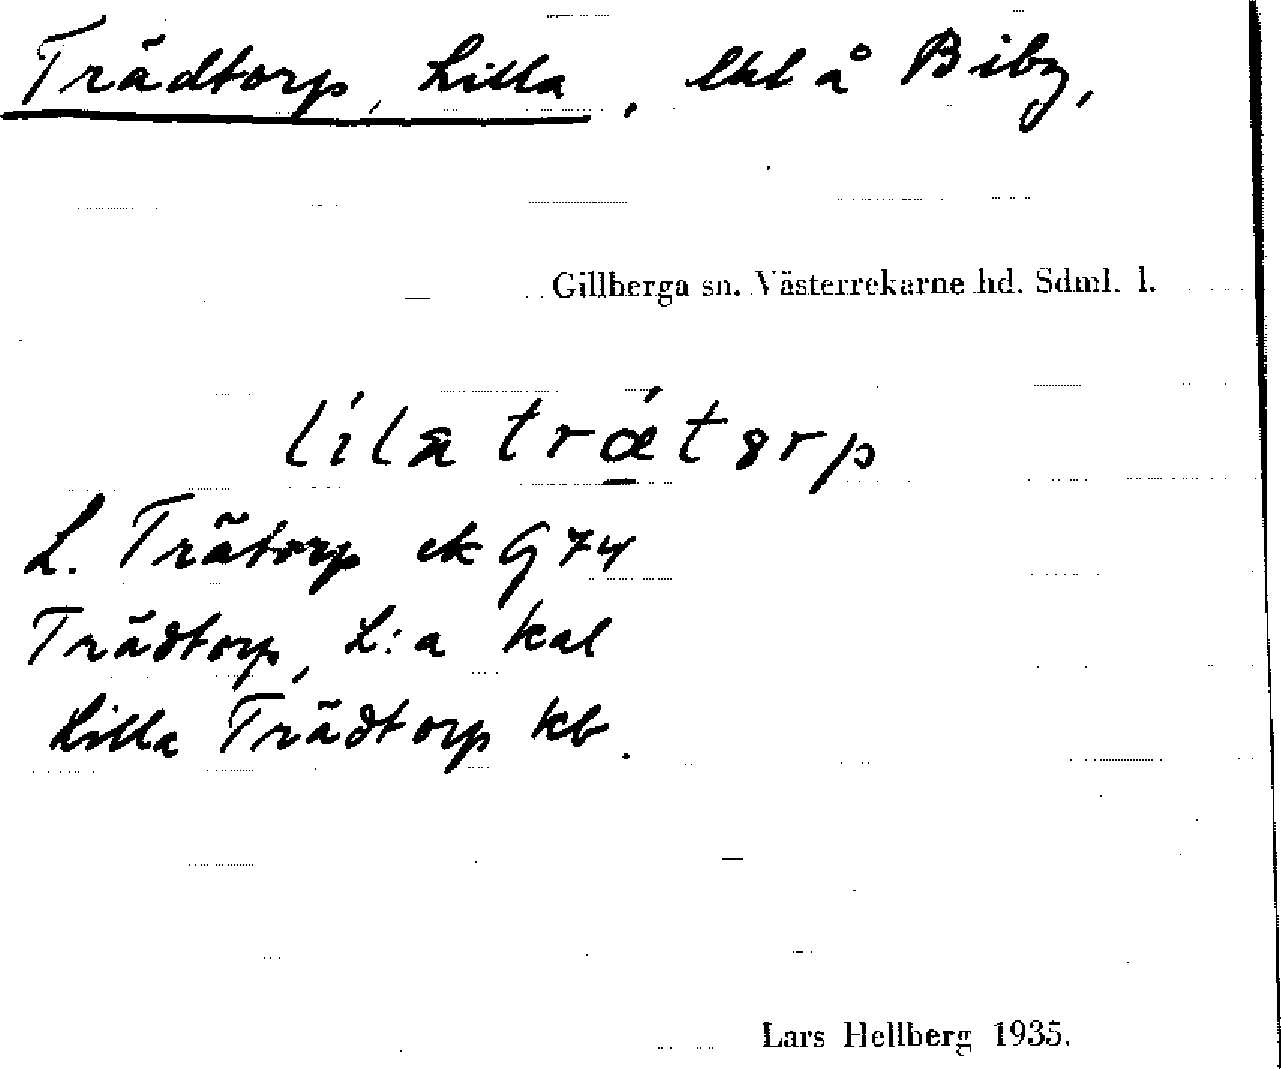 Trädtorp, Lilla, lht å Biby,
Gillberga sn. Västerrekarne hd. Sdml. l.
líla trǽtørp
L. Trätorp ek G 74
Trädtorp, L:a kal
Lilla Trädtorp kb.
Lars Hellberg 1935.